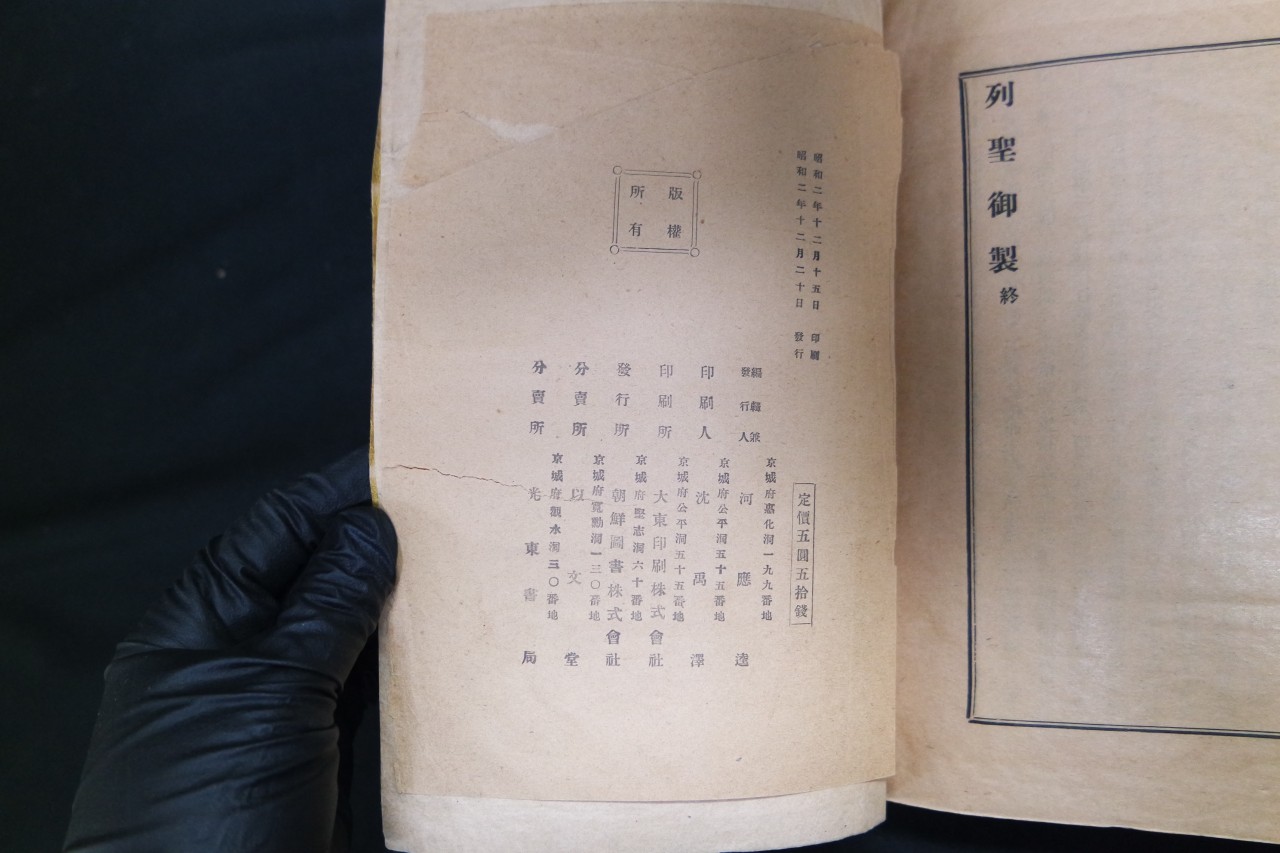 列聖御製 終
昭和二年十二月十五日 印刷
昭和二年十二月二十日 發行
版權
所有
定價五圓五拾錢
編輯兼
發行人
京城府惠化洞一九九番地
河應逵
印刷人
京城府公平洞五十五番地
沈禹澤
印刷所
京城府公平洞五十五番地
大東印刷株式會社
發行所
京城府堅志洞六十番地
朝鮮圖書株式會社
分賣所
京城府寬勳洞一三〇番地
以文堂
分賣所
京城府觀水洞三〇番地
光東書局